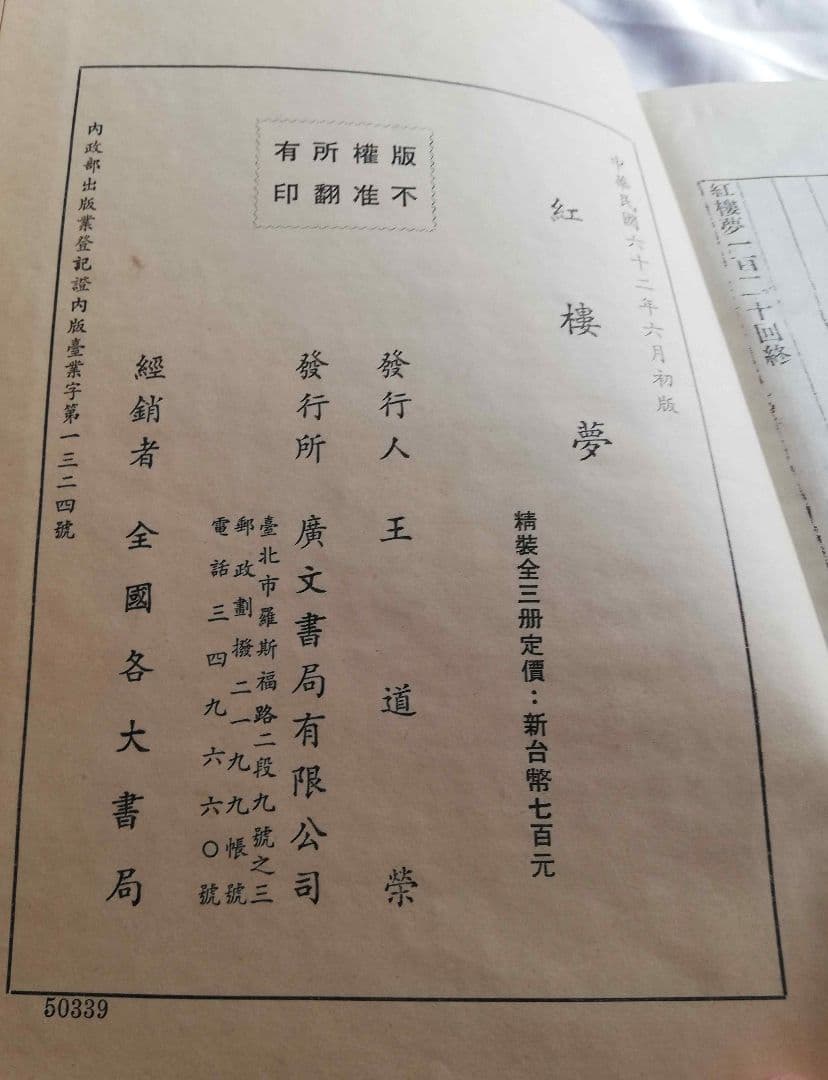 紅樓夢一百二十回終
中華民國六十二年六月初版
紅樓夢
精裝全三册定價：新台幣七百元
版權所有
不准翻印
發行人 王道榮
發行所 廣文書局有限公司
臺北市羅斯福路二段九號之三
郵政劃撥二一九九帳號
電話三四九六六〇號
經銷者 全國各大書局
內政部出版業登記證內版臺業字第一三二四號
50339